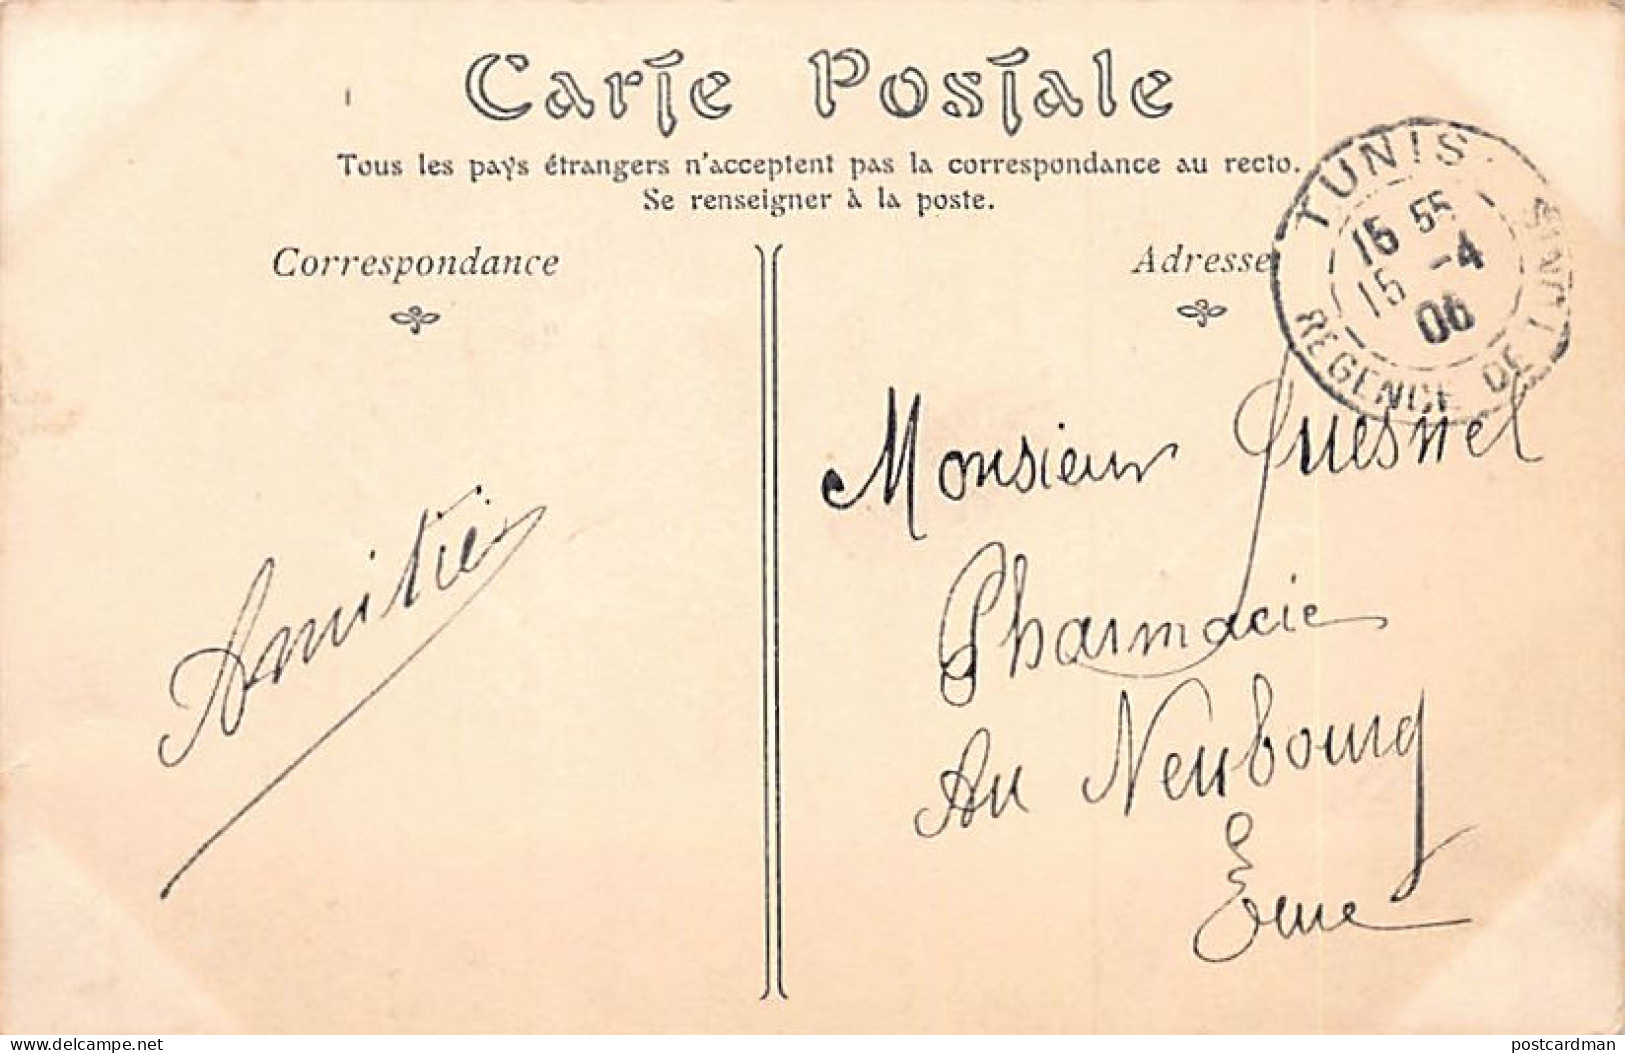 Carte Postale
Tous les pays étrangers n'acceptent pas la correspondance au recto.
Se renseigner à la poste.
Correspondance
Adresse
TUNIS
15 55
15 -4
06
REGENCE DE TUNIS
Amitié
Monsieur Quesnel
Pharmacie
Au Neubourg
Eure
delcampe.net
postcardman